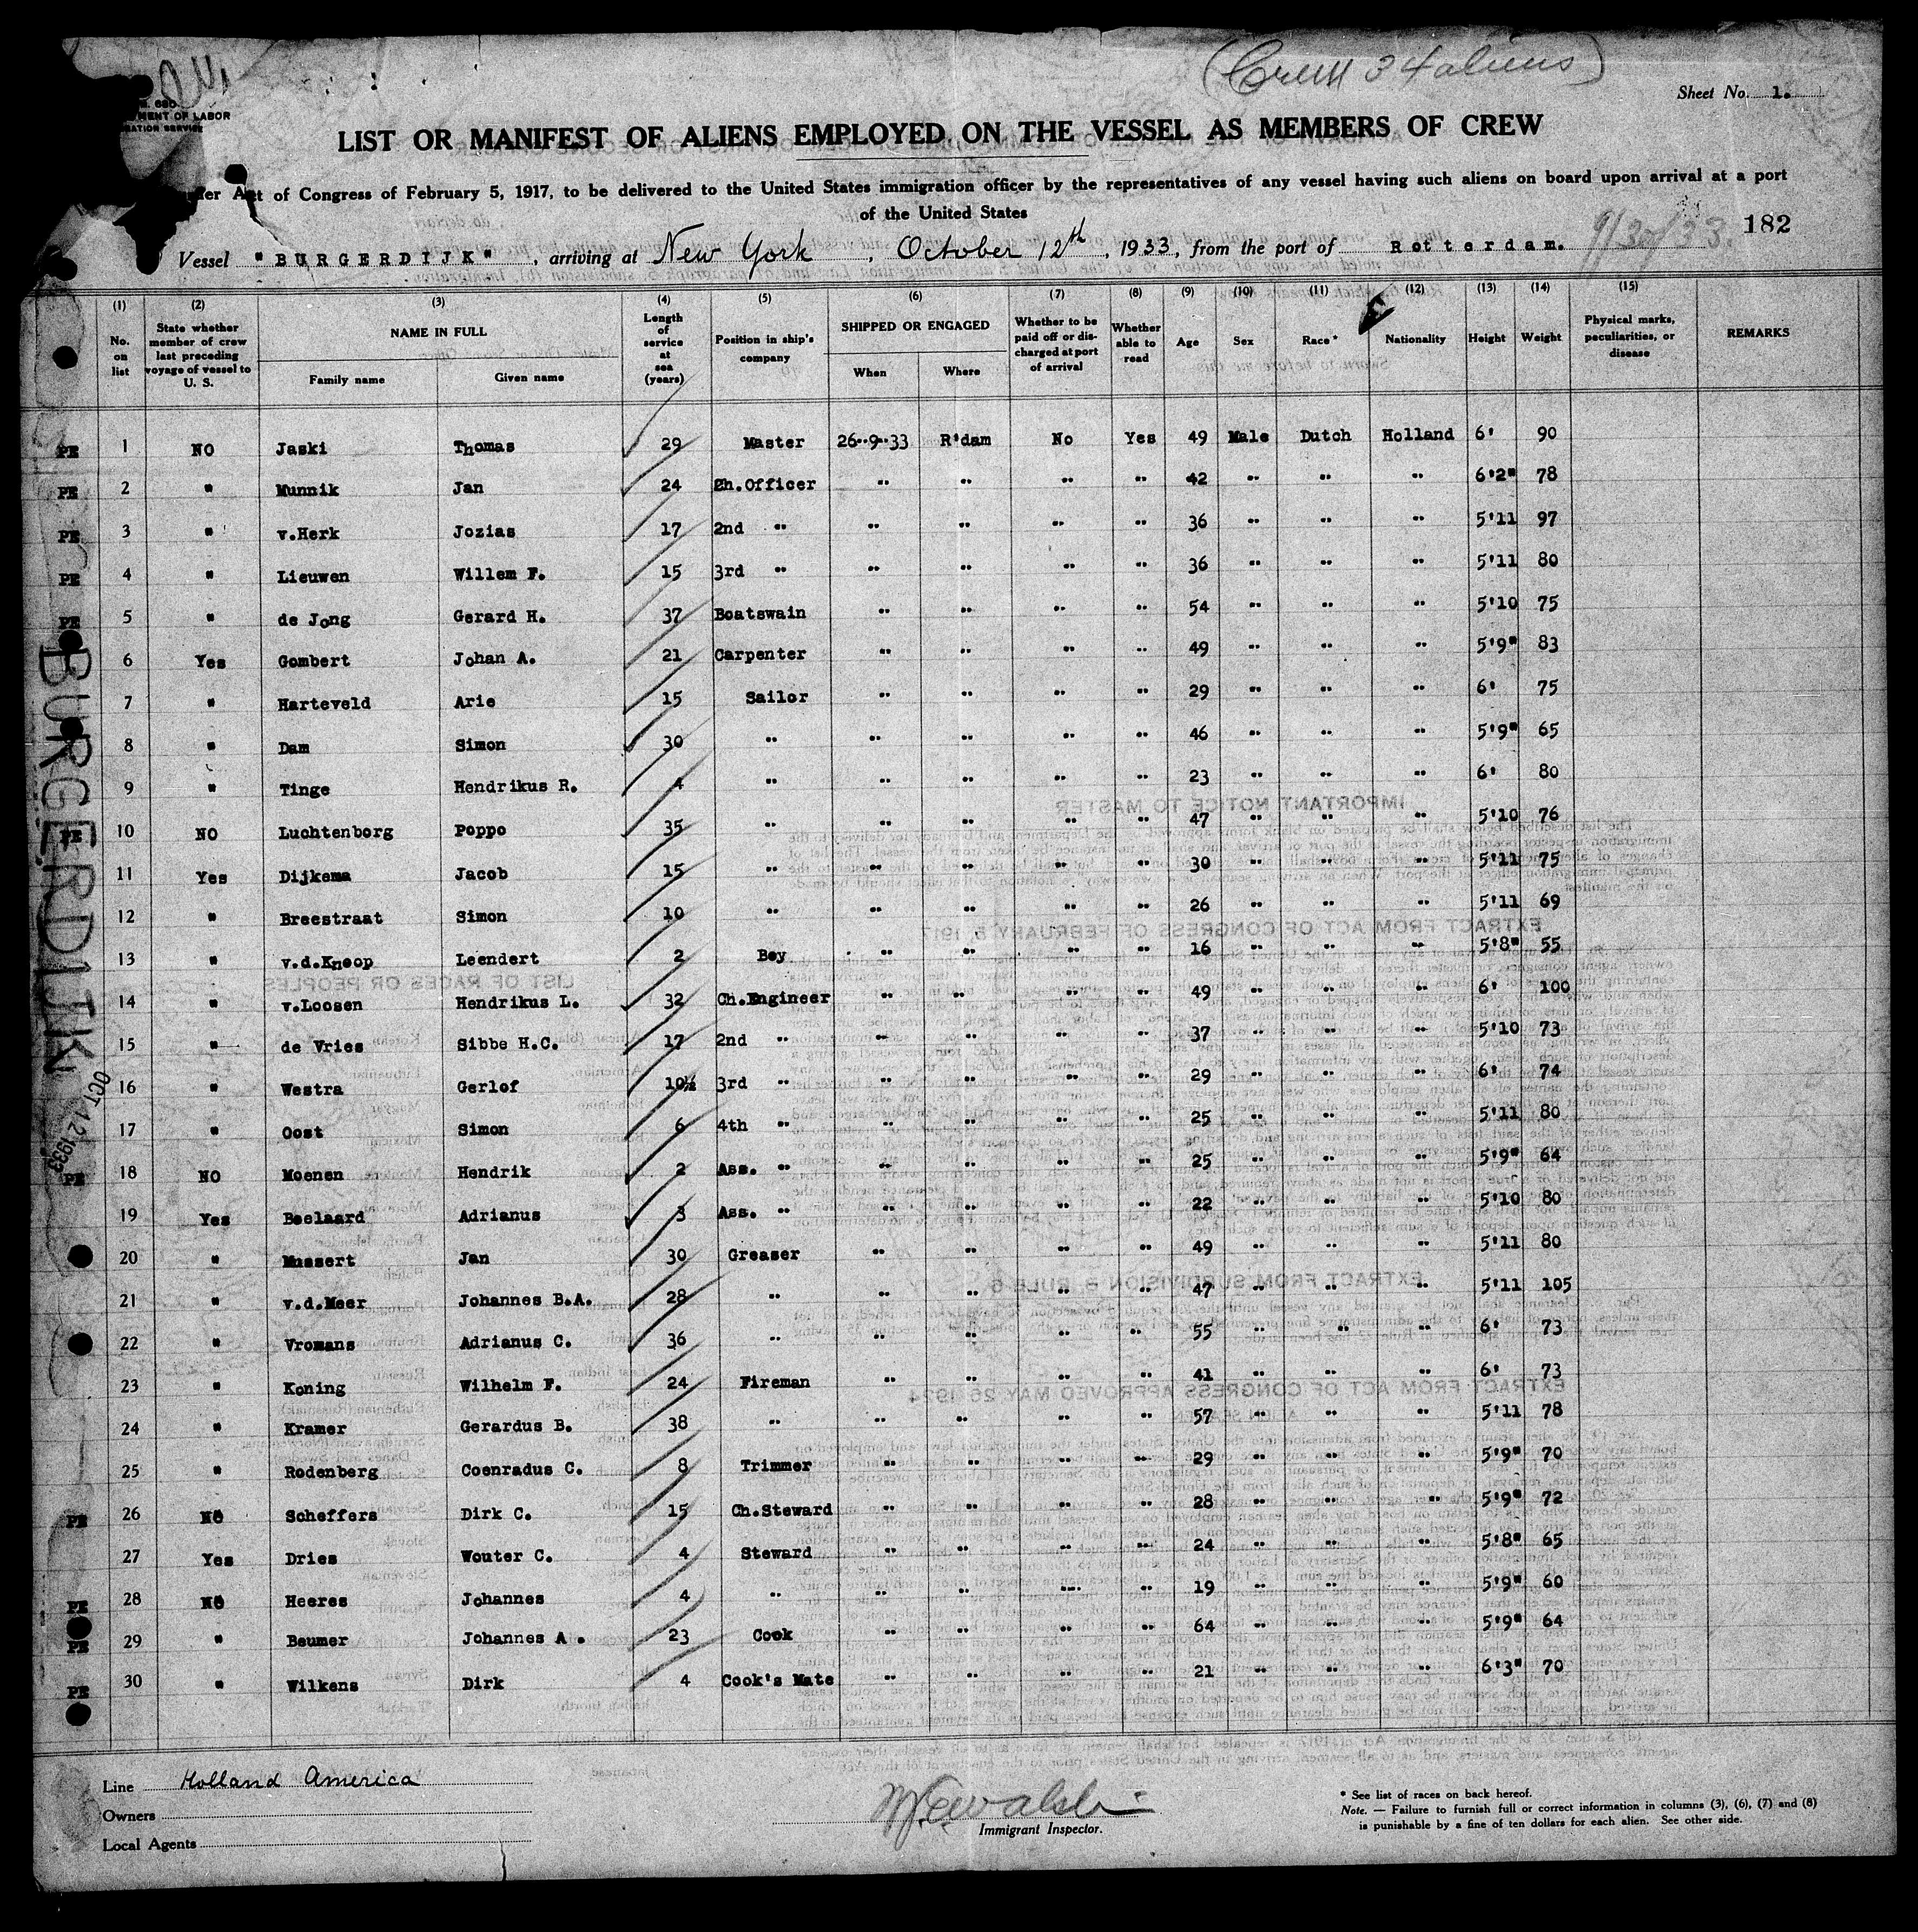 (Crew 34 aliens)
Sheet No. 1.
MENT OF LABOR
RATION SERVICE
LIST OR MANIFEST OF ALIENS EMPLOYED ON THE VESSEL AS MEMBERS OF CREW
Act of Congress of February 5, 1917, to be delivered to the United States immigration officer by the representatives of any vessel having such aliens on board upon arrival at a port
of the United States
9/30/33. 182
Vessel "BURGERDIJK", arriving at New York, October 12th, 1933, from the port of Rotterdam.
(1) (2) (3) (4) (5) (6) (7) (8) (9) (10) (11) (12) (13) (14) (15)
No. on list | State whether member of crew last preceding voyage of vessel to U. S. | NAME IN FULL | Family name | Given name | Length of service at sea (years) | Position in ship's company | SHIPPED OR ENGAGED | When | Where | Whether to be paid off or discharged at port of arrival | Whether able to read | Age | Sex | Race* | Nationality | Height | Weight | Physical marks, peculiarities, or disease | REMARKS
PE 1 NO Jaski Thomas 29 Master 26-9-33 R'dam No Yes 49 Male Dutch Holland 6' 90
PE 2 " Munnik Jan 24 Ch.Officer " " " " 42 " " " 6'2" 78
PE 3 " v.Herk Jozias 17 2nd " " " " " 36 " " " 5'11 97
PE 4 " Lieuwen Willem F. 15 3rd " " " " " 36 " " " 5'11 80
PE 5 " de Jong Gerard H. 37 Boatswain " " " " 54 " " " 5'10 75
6 Yes Gombert Johan A. 21 Carpenter " " " " 49 " " " 5'9" 83
7 " Harteveld Arie 15 Sailor " " " " 29 " " " 6' 75
8 " Dam Simon 30 " " " " " 46 " " " 5'9" 65
9 " Tinge Hendrikus R. 4 " " " " " 23 " " " 6' 80
PE 10 NO Luchtenborg Poppo 35 " " " " " 47 " " " 5'10 76
11 Yes Dijkema Jacob 15 " " " " " 30 " " " 5'11 75
12 " Breestraat Simon 10 " " " " " 26 " " " 5'11 69
13 " v.d.Knoop Leendert 2 Boy " " " " 16 " " " 5'8" 55
14 " v.Loosen Hendrikus L. 32 Ch.Engineer " " " " 49 " " " 6' 100
15 " de Vries Sibbe H.C. 17 2nd " " " " " 37 " " " 5'10 73
16 " Westra Gerlof 10½ 3rd " " " " " 29 " " " 6' 74
17 " Oost Simon 6 4th " " " " " 25 " " " 5'11 80
PE 18 NO Moenen Hendrik 2 Ass. " " " " " 25 " " " 5'9" 64
19 Yes Beelaard Adrianus 3 Ass. " " " " " 22 " " " 5'10 80
20 " Mussert Jan 30 Greaser " " " " 49 " " " 5'11 80
21 " v.d.Meer Johannes B.A. 28 " " " " " 47 " " " 5'11 105
22 " Vromans Adrianus C. 36 " " " " " 55 " " " 6' 73
23 " Koning Wilhelm F. 24 Fireman " " " " 41 " " " 6' 73
24 " Kramer Gerardus B. 38 " " " " " 57 " " " 5'11 78
25 " Rodenberg Coenradus C. 8 Trimmer " " " " 29 " " " 5'9" 70
PE 26 NO Scheffers Dirk C. 15 Ch.Steward " " " " 28 " " " 5'9" 72
27 Yes Dries Wouter C. 4 Steward " " " " 24 " " " 5'8" 65
PE 28 NO Heeres Johannes 4 " " " " " 19 " " " 5'9" 60
PE 29 " Beumer Johannes A. 23 Cook " " " " 64 " " " 5'9" 64
PE 30 " Wilkens Dirk 4 Cook's Mate " " " " 21 " " " 6'3" 70
BURGERDIJK
OCT 12 1933
Line Holland America
Owners
Local Agents
Immigrant Inspector.
* See list of races on back hereof.
Note. — Failure to furnish full or correct information in columns (3), (6), (7) and (8)
is punishable by a fine of ten dollars for each alien. See other side.